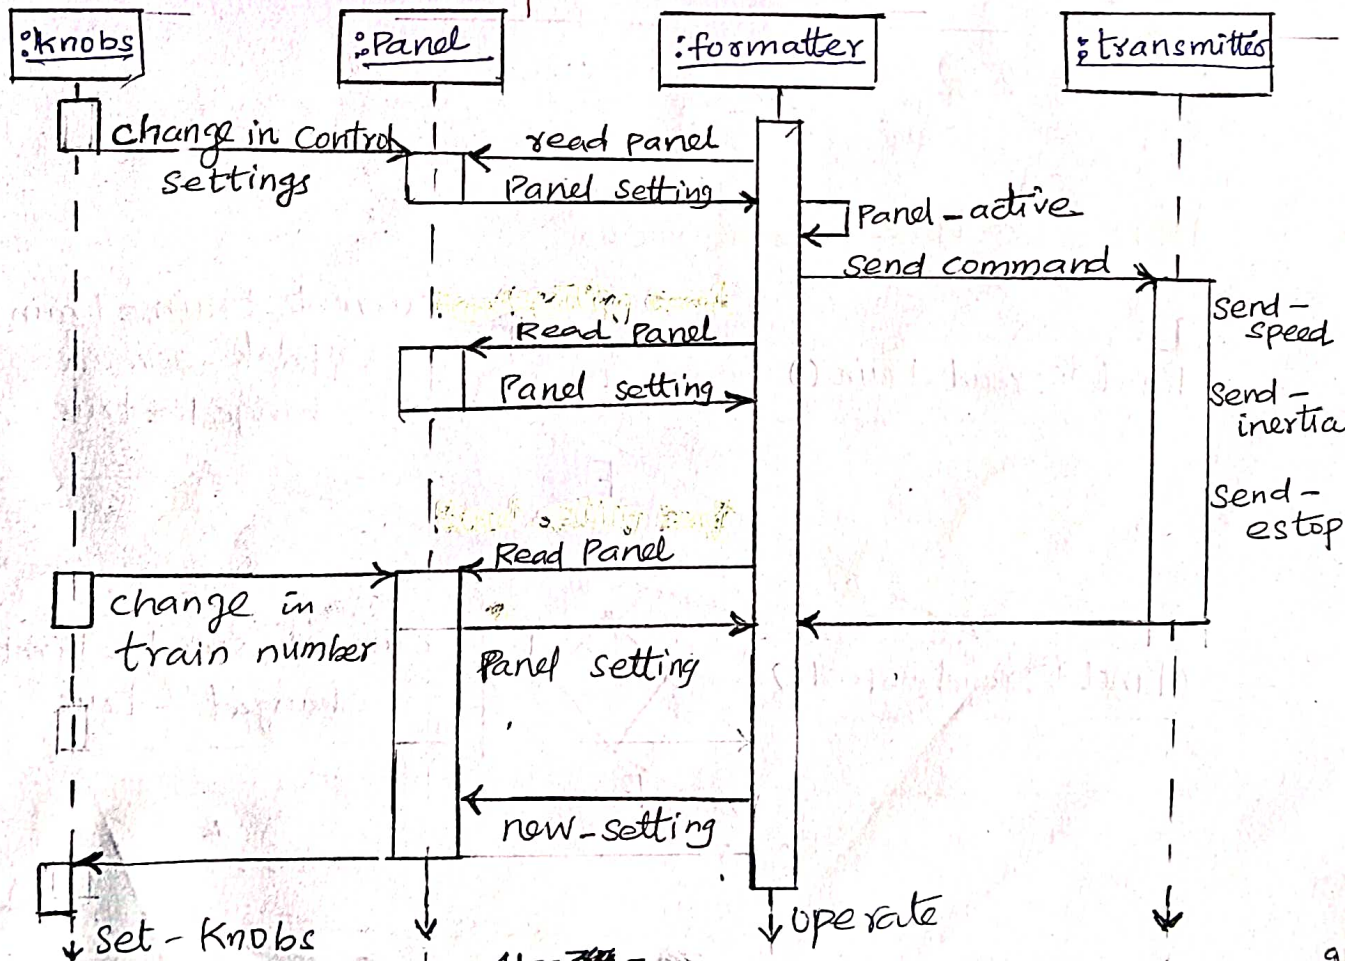 :Knobs
:Panel
:formatter
:transmitter
change in control
settings
read panel
Panel setting
Panel-active
Send command
Send-
speed
Read Panel
Panel setting
Send-
inertia
Send-
estop
Read Panel
change in
train number
Panel setting
new-setting
operate
Set-Knobs